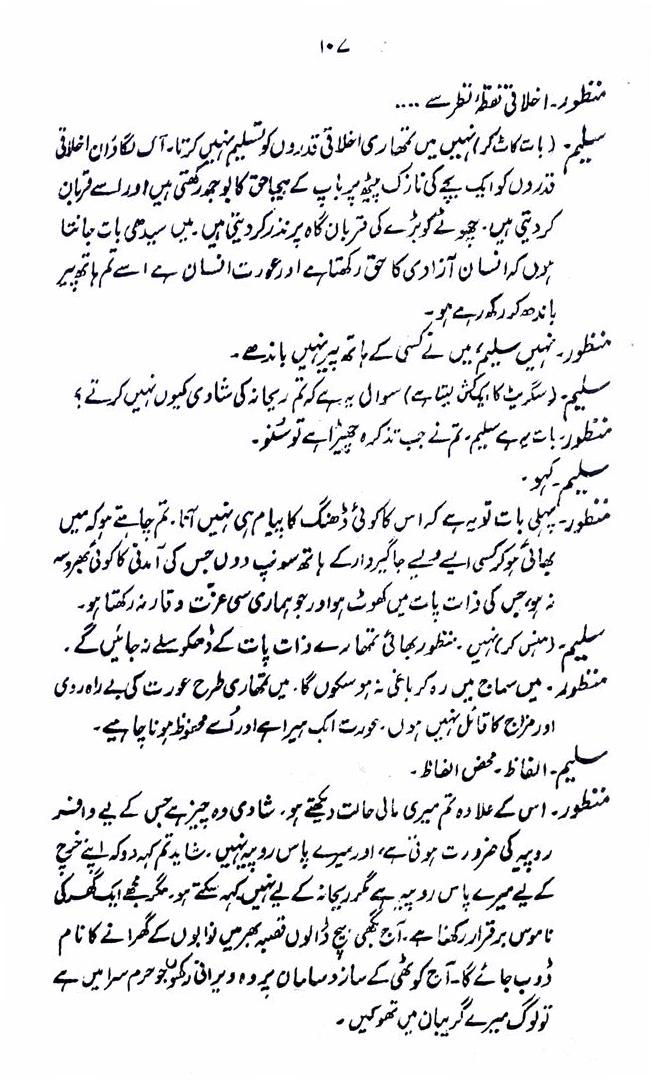 ۱۰۷
منظور۔ اخلاقی نقطۂ نظر سے ....
سلیم۔ (بات کاٹ کر) نہیں میں تمھاری اخلاقی قدروں کو تسلیم نہیں کرتا۔ آگ لگاؤ ان اخلاقی
قدروں کو ایک بچے کی نازک پیٹھ پر باپ کے بیجا حق کا بوجھ رکھتی ہیں اور اسے قربان
کر دیتی ہیں۔ چھوٹے کو بڑے کی قربان گاہ پر نذر کر دیتی ہیں۔ میں سیدھی بات جانتا
ہوں کہ انسان آزادی کا حق رکھتا ہے اور عورت انسان ہے اسے تم ہاتھ پیر
باندھ کر رکھ رہے ہو۔
منظور۔ نہیں سلیم، میں نے کسی کے ہاتھ پیر نہیں باندھے۔
سلیم۔ (سگریٹ کا ایک کش لیتا ہے) سوال یہ ہے کہ تم ریحانہ کی شادی کیوں نہیں کرتے؟
منظور۔ بات یہ ہے سلیم۔ تم نے جب تذکرہ چھیڑا ہے تو سُنو۔
سلیم۔ کہو۔
منظور۔ پہلی بات تو یہ ہے کہ اس کا کوئی ڈھنگ کا پیام ہی نہیں آتا۔ تم چاہتے ہو کہ میں
بھائی ہو کر کسی ایسے ویسے جاگیردار کے ہاتھ سونپ دوں جس کی آمدنی کا کوئی بھروسہ
نہ ہو، جس کی ذات پات میں کھوٹ ہو اور جو ہماری سی عزّت وقار نہ رکھتا ہو۔
سلیم۔ (ہنس کر) نہیں۔ منظور بھائی تمھارے ذات پات کے ڈھکوسلے نہ جائیں گے۔
منظور۔ میں سماج میں رہ کر باغی نہ ہو سکوں گا۔ میں تمھاری طرح عورت کی بے راہ روی
اور مزاج کا قائل نہیں ہوں۔ عورت اک ہیرا ہے اور اُسے محفوظ ہونا چاہیے۔
سلیم۔ الفاظ۔ محض الفاظ۔
منظور۔ اس کے علاوہ تم میری مالی حالت دیکھتے ہو۔ شادی وہ چیز ہے جس کے لیے وافر
روپیہ کی ضرورت ہوتی ہے، اور میرے پاس روپیہ نہیں۔ شاید تم کہہ دو کہ اپنے خرچ
کے لیے میرے پاس روپیہ ہے مگر ریحانہ کے لیے نہیں کہہ سکتے ہو۔ مگر مجھے ایک گھر کی
ناموس برقرار رکھنا ہے۔ آج بگھی بیچ ڈالوں قصبہ بھر میں نوابوں کے گھرانے کا نام
ڈوب جائے گا۔ آج کوٹھی کے ساز و سامان پر وہ ویرانی رکھوں جو حرم سرا میں ہے
تو لوگ میرے گریبان میں تھوکیں۔